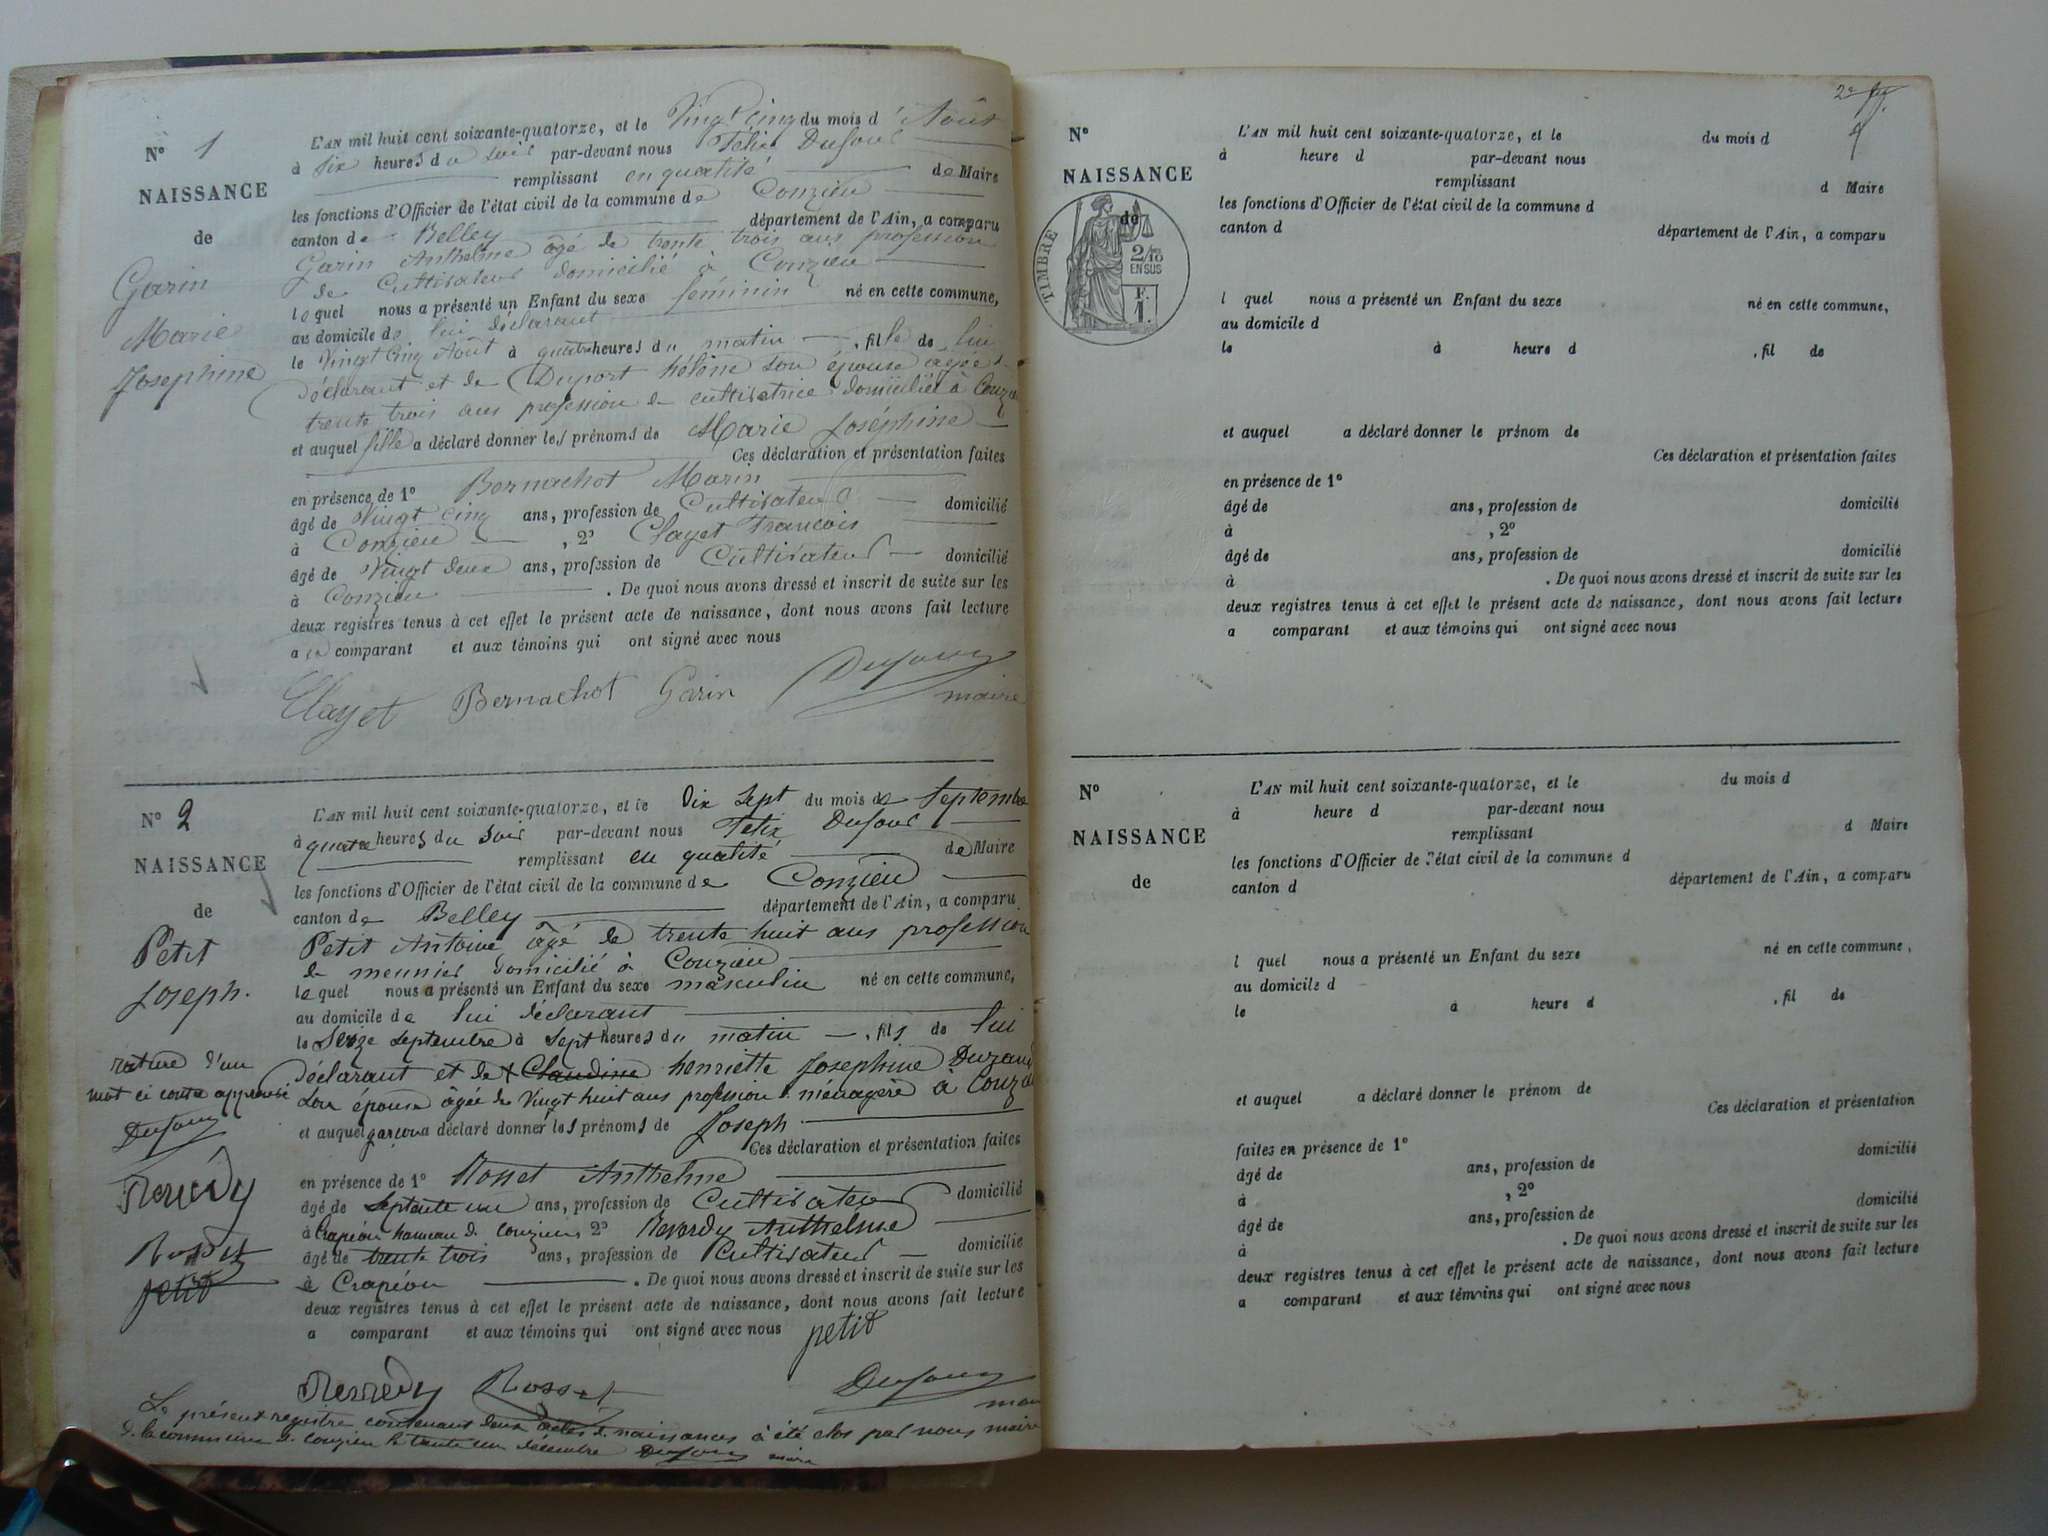 N° 1
NAISSANCE
de
Garin
Marie
Josephine
L'AN mil huit cent soixante-quatorze, et le Vingt Cinq du mois d'Août
à six heures du soir par-devant nous Félix Dufour
remplissant en qualité de Maire
les fonctions d'Officier de l'état civil de la commune de Conzieu
canton de Belley département de l'Ain, a comparu
Garin Anthelme âgé de trente trois ans profession
de Cultivateur domicilié à Conzieu
lequel nous a présenté un Enfant du sexe féminin né en cette commune,
au domicile de lui déclarant
le Vingt Cinq Août à quatre heures du matin, fille de lui
déclarant et de Duport hélène son épouse agée de
trente trois ans profession de cultivatrice domiciliée à Conzieu
et auquel fille a déclaré donner les prénoms de Marie Joséphine
Ces déclaration et présentation faites
en présence de 1° Bernachot Marin
âgé de Vingt cinq ans, profession de Cultivateur domicilié
à Conzieu, 2° Clayet Francois
âgé de Vingt deux ans, profession de Cultivateur domicilié
à Conzieu. De quoi nous avons dressé et inscrit de suite sur les
deux registres tenus à cet effet le présent acte de naissance, dont nous avons fait lecture
au comparant et aux témoins qui ont signé avec nous
Clayet Bernachot Garin Dufour
maire
N° 2
NAISSANCE
de
Petit
Joseph.
rature d'un
mot ci contre approuvé
Dufour
Reverdy
Rosset
petit
L'AN mil huit cent soixante-quatorze, et le Dix Sept du mois de Septembre
à quatre heures du soir par-devant nous Félix Dufour
remplissant en qualité de Maire
les fonctions d'Officier de l'état civil de la commune de Conzieu
canton de Belley département de l'Ain, a comparu
Petit Antoine âgé de trente huit ans profession
de meunier domicilié à Conzieu
lequel nous a présenté un Enfant du sexe masculin né en cette commune,
au domicile de lui déclarant
le Seize Septembre à Sept heures du matin, fils de lui
déclarant et de Claudine henriette Josephine Durand
son épouse âgée de Vingt huit ans profession ménagère à Conzieu
et auquel garçon a déclaré donner les prénoms de Joseph
Ces déclaration et présentation faites
en présence de 1° Rosset Anthelme
âgé de septante un ans, profession de Cultivateur domicilié
à Crapéou hameau de Conzieu 2° Reverdy Anthelme
âgé de trente trois ans, profession de Cultivateur domicilié
à Crapéou. De quoi nous avons dressé et inscrit de suite sur les
deux registres tenus à cet effet le présent acte de naissance, dont nous avons fait lecture
a comparant et aux témoins qui ont signé avec nous petit
Reverdy Rosset Dufour
maire
Le présent registre contenant deux actes de naissances à été clos par nous maire
de la commune de Conzieu le trente un décembre Dufour maire
2e
N°
NAISSANCE
de
TIMBRE
2/10
EN SUS
F.
1.
L'AN mil huit cent soixante-quatorze, et le du mois d
à heure d par-devant nous
remplissant d Maire
les fonctions d'Officier de l'état civil de la commune d
canton d département de l'Ain, a comparu
l quel nous a présenté un Enfant du sexe né en cette commune,
au domicile d
le à heure d , fil de
et auquel a déclaré donner le prénom de
Ces déclaration et présentation faites
en présence de 1°
âgé de ans, profession de domicilié
à , 2°
âgé de ans, profession de domicilié
à . De quoi nous avons dressé et inscrit de suite sur les
deux registres tenus à cet effet le présent acte de naissance, dont nous avons fait lecture
a comparant et aux témoins qui ont signé avec nous
N°
NAISSANCE
de
L'AN mil huit cent soixante-quatorze, et le du mois d
à heure d par-devant nous
remplissant d Maire
les fonctions d'Officier de l'état civil de la commune d
canton d département de l'Ain, a comparu
l quel nous a présenté un Enfant du sexe né en cette commune,
au domicile d
le à heure d , fil de
et auquel a déclaré donner le prénom de
Ces déclaration et présentation
faites en présence de 1°
âgé de ans, profession de domicilié
à , 2°
âgé de ans, profession de domicilié
à . De quoi nous avons dressé et inscrit de suite sur les
deux registres tenus à cet effet le présent acte de naissance, dont nous avons fait lecture
a comparant et aux témoins qui ont signé avec nous